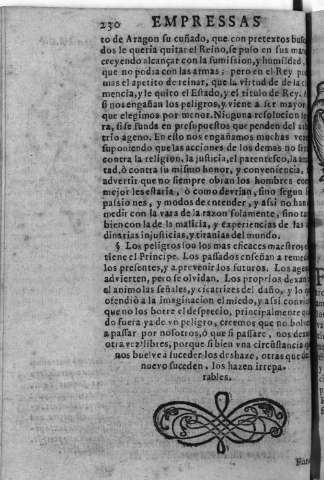 230 EMPRESSAS
to de Aragon su cuñado, que con pretextos busca
dos le queria quitar el Reino, se puso en sus man
creyendo alcançar con la sumission, y humildad,
que no podia con las armas; pero en el Rey pu
mas el apetito de reinar, que la virtud de de la cle
mencia, y le quito el Estado, y el titulo de Rey.
si nos engañan los peligros, y viene a ser mayor
que elegimos por menor. Ninguna resolucion
ra, si se funda en presupuestos que penden del
trio ageno. En esto nos engañamos muchas vez
suponiendo que las acciones de los demas no
contra la religion, la justicia, el parentesco, la am
tad, ò contra su mismo honor, y conveniencia,
advertir que no siempre obran los hombres com
mejor les estaria, ò como devrian, sino segun
passiones, y modos de entender, y assi no han
medir con la vara de la razon solamente, sino ta
bien con la de la malicia, y experiencias de las
dinarias injusticias, y tiranias del mundo.
§ Los peligros son los mas eficaces maestros
tiene el Principe. Los passados enseñan a remed
los presentes, y a prevenir los futuros. Los agen
advierten, pero se olvidan. Los proprios dexan
el animo las señales, y cicatrizes del daño, y lo
ofendiò a la imaginacion el miedo, y assi convie
que no los borre el desprecio, principalmente
do fuera ya de vn peligro, creemos que no bolve
a passar por nosotros, ò que si passare, nos dexa
otra vez libres, porque si bien vna circũstancia
nos buelve á suceder los deshaze, otras que de
nuevo suceden, los hazen irrepa-
rables.